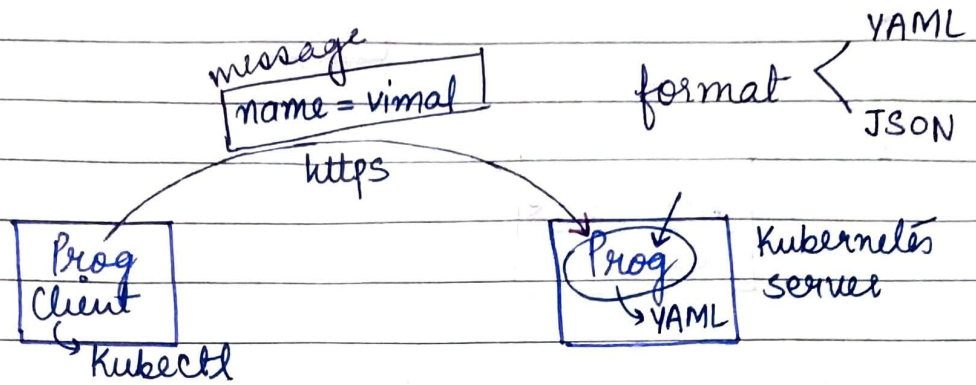 message
name = vimal
https
format
YAML
JSON
Prog
Client
Kubectl
Prog
YAML
Kubernetes
server